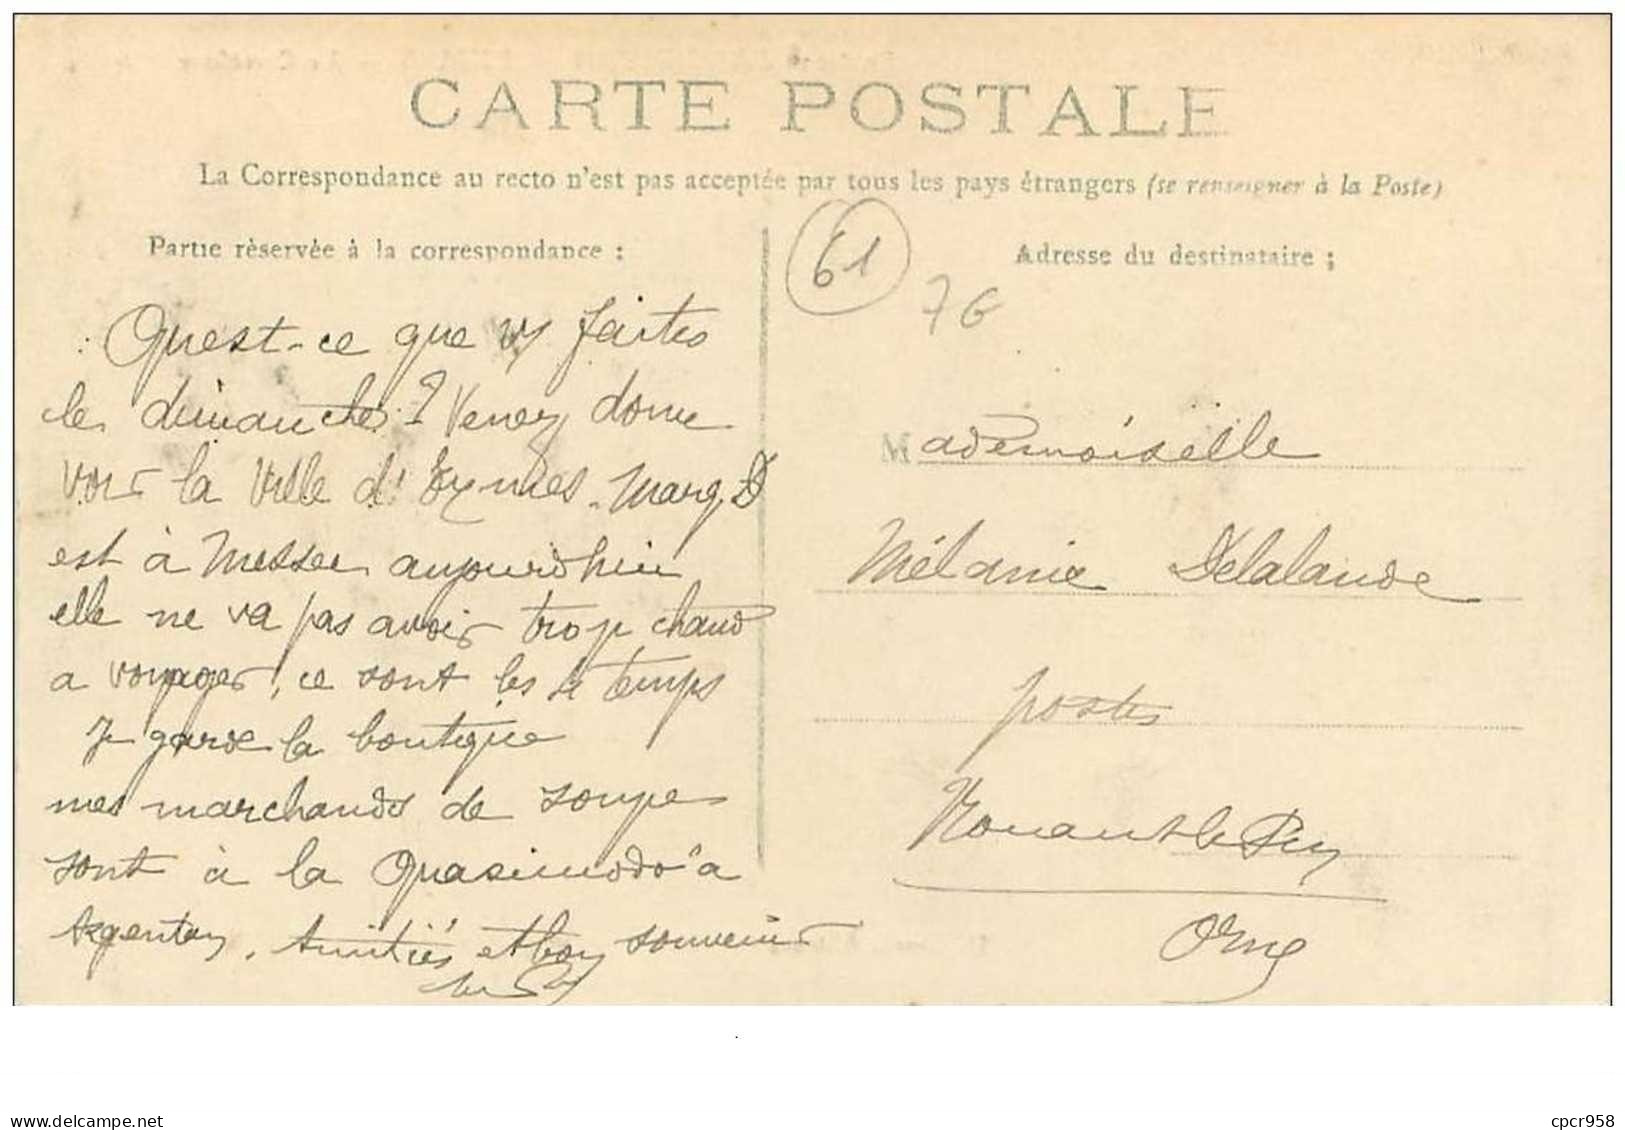 CARTE POSTALE
La Correspondance au recto n'est pas acceptée par tous les pays étrangers (se renseigner à la Poste)
Partie réservée à la correspondance :
Adresse du destinataire ;
61
7G
Quest-ce que vs faites
les dimanches ? Venez donc
voir la Ville d'Exmes. Marg D
est à Messei aujourdhui
elle ne va pas avoir trop chaud
a voyager, ce sont les 4 temps
Je garde la boutique
mes marchands de soupe
sont à la Quasimodo à
Argentan. Amitiés et bon souvenir
Mademoiselle
Mélanie Delalande
postes
Nonant le Pin
Orne
cpcr958
www.delcampe.net